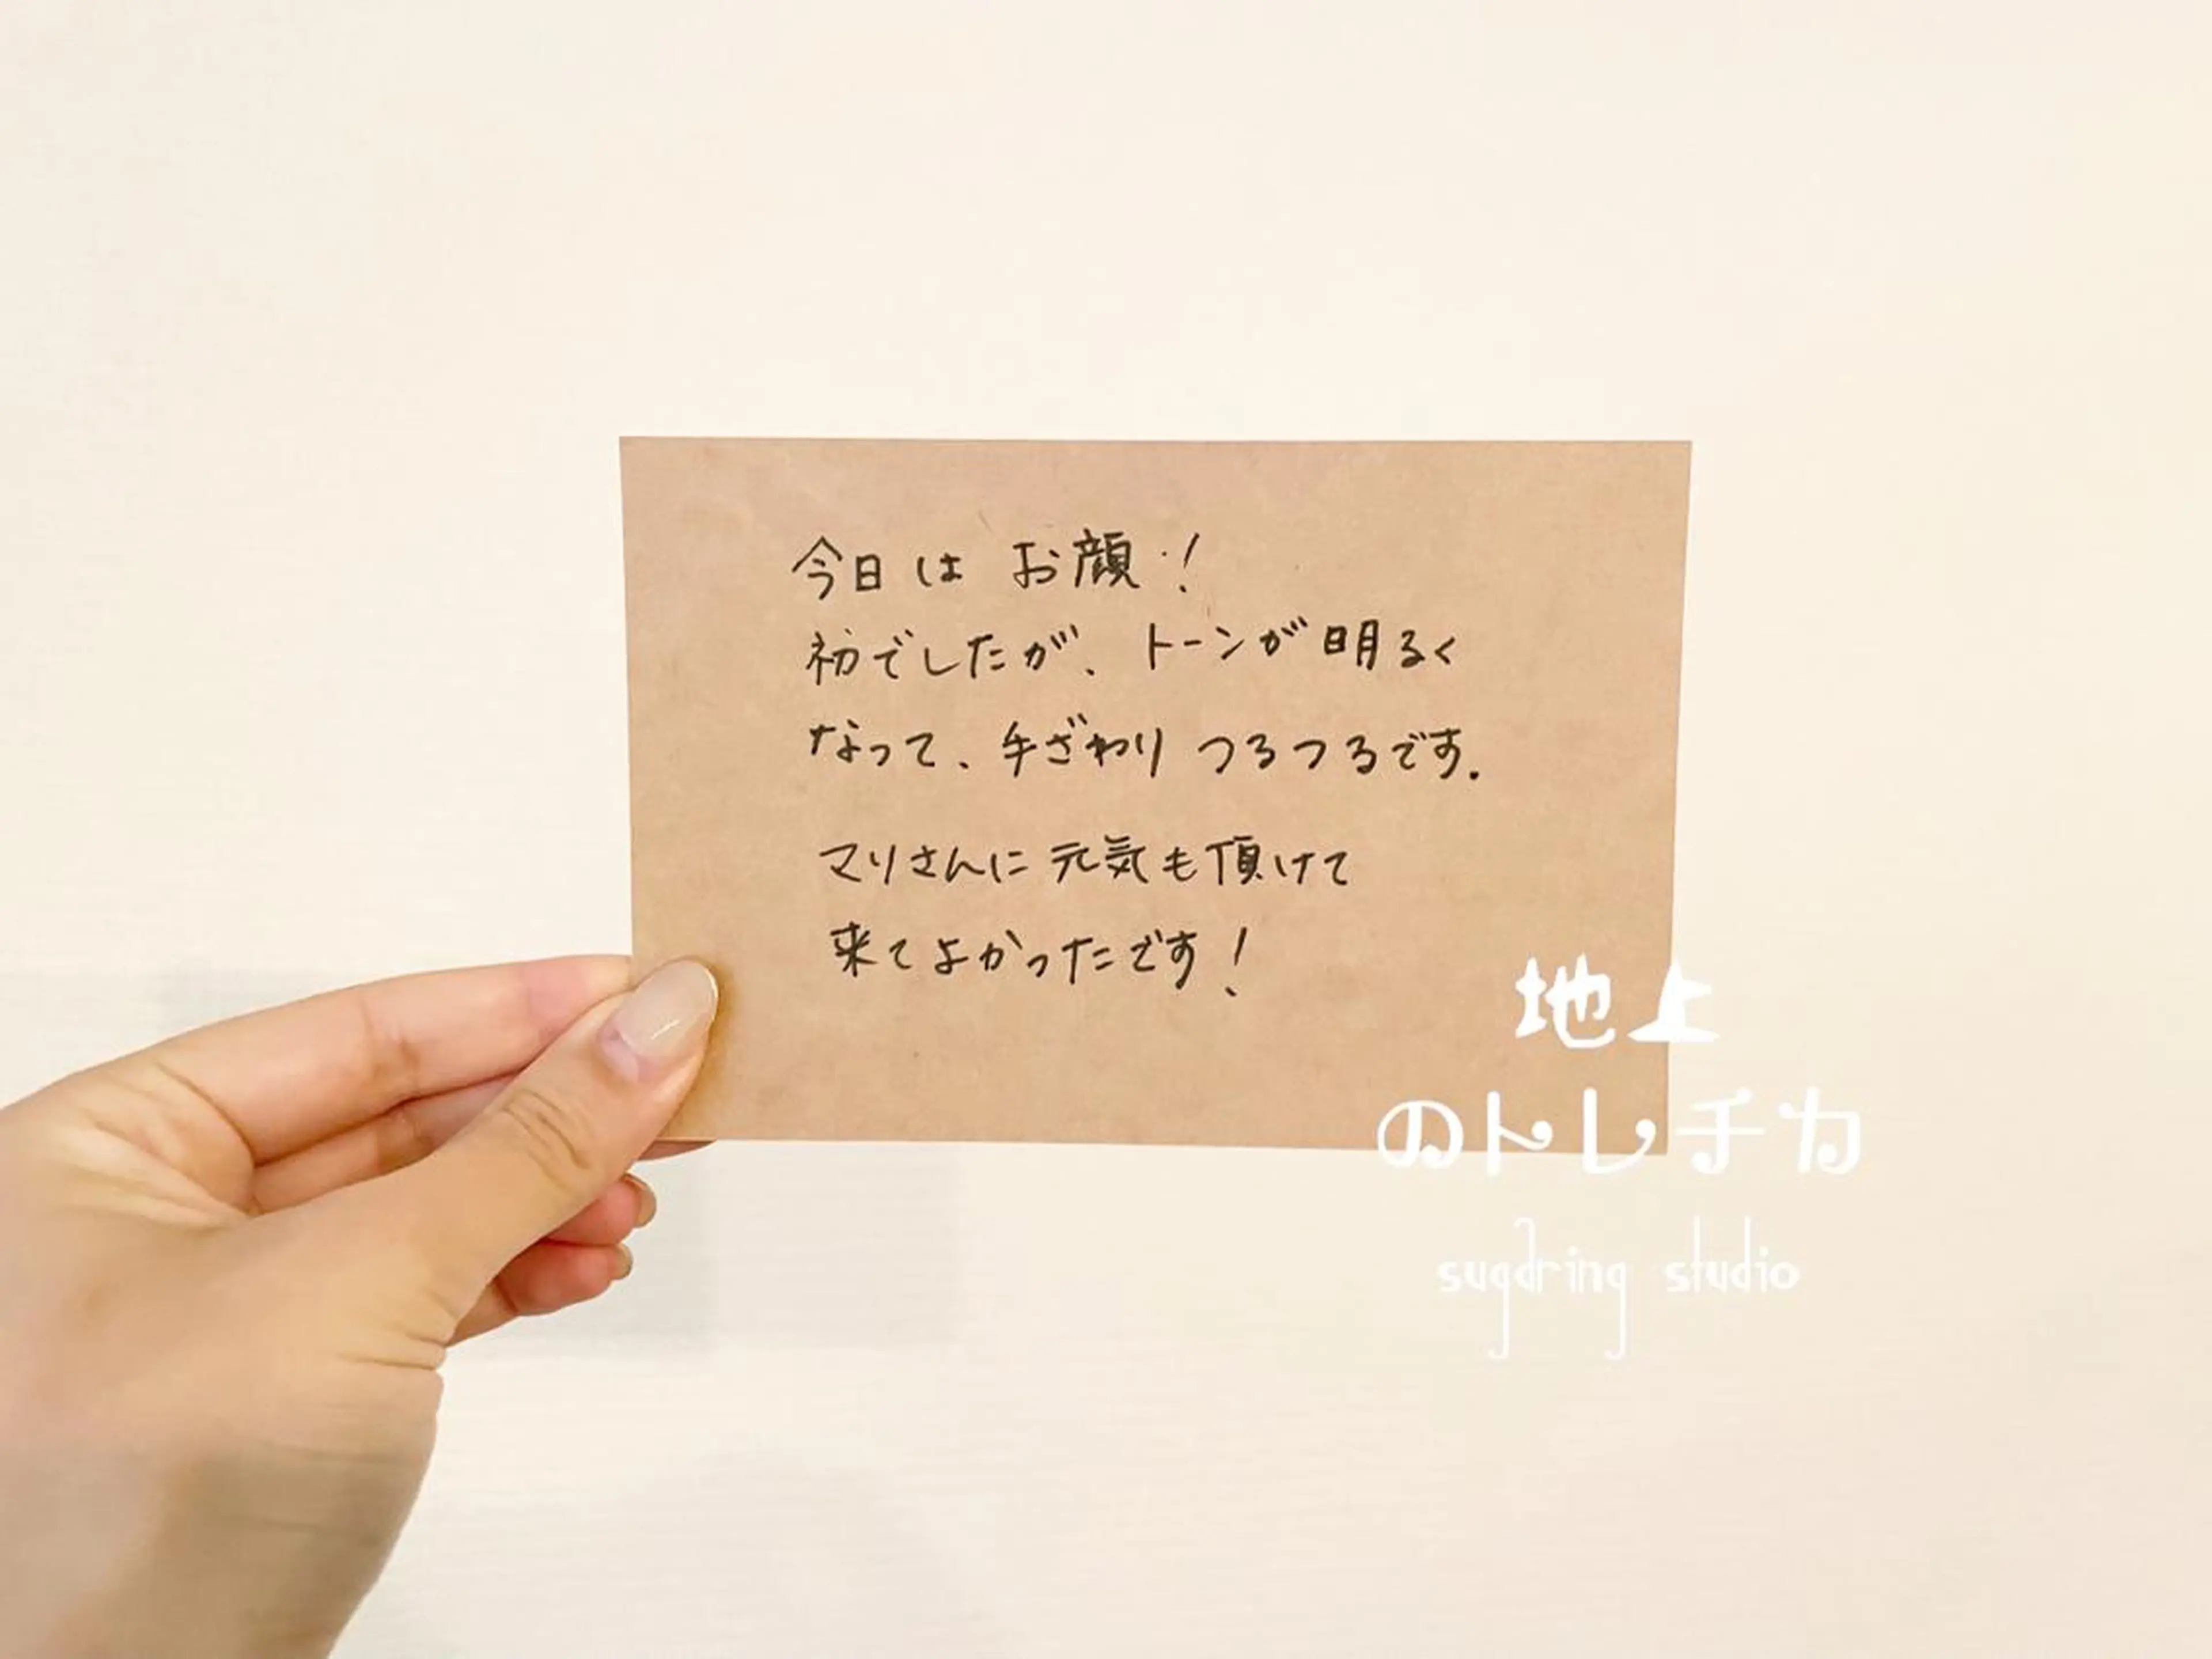 今日は お顔!
初でしたが、トーンが明るく
なって、手ざわり つるつるです.
マリさんに 元気も頂けて
来てよかったです!
地上
のトレチカ
sugaring studio